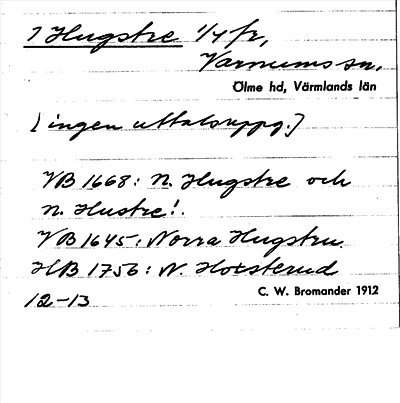 1 Hugstre 1/4 fr,
Varnums sn.
Ölme hd, Värmlands län
[ingen uttalsuppg.]
VB 1668: N. Hugstre och
N. Hustre!.
VB 1645: Norra Hugstru
HB 1756: N. Hotsterud
12-13
C. W. Bromander 1912